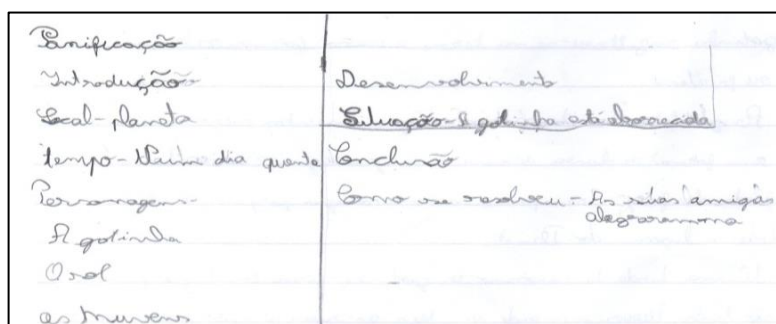 Panificação
Introdução
Local - planeta
tempo - Num dia quente
Personagens -
A gotinha
O sol
as nuvens
Desenvolvimento
Situação - A gotinha está aborrecida
Conclusão
Como se resolveu - As suas amigas
alegraram-na